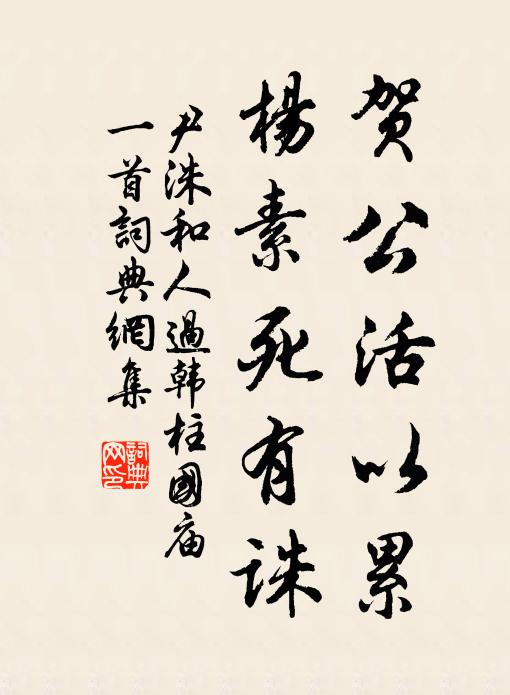 贺公活以累
楊素死有誅
尹洙和人過韩柱國庙
一首詞典網集
詞典
网印